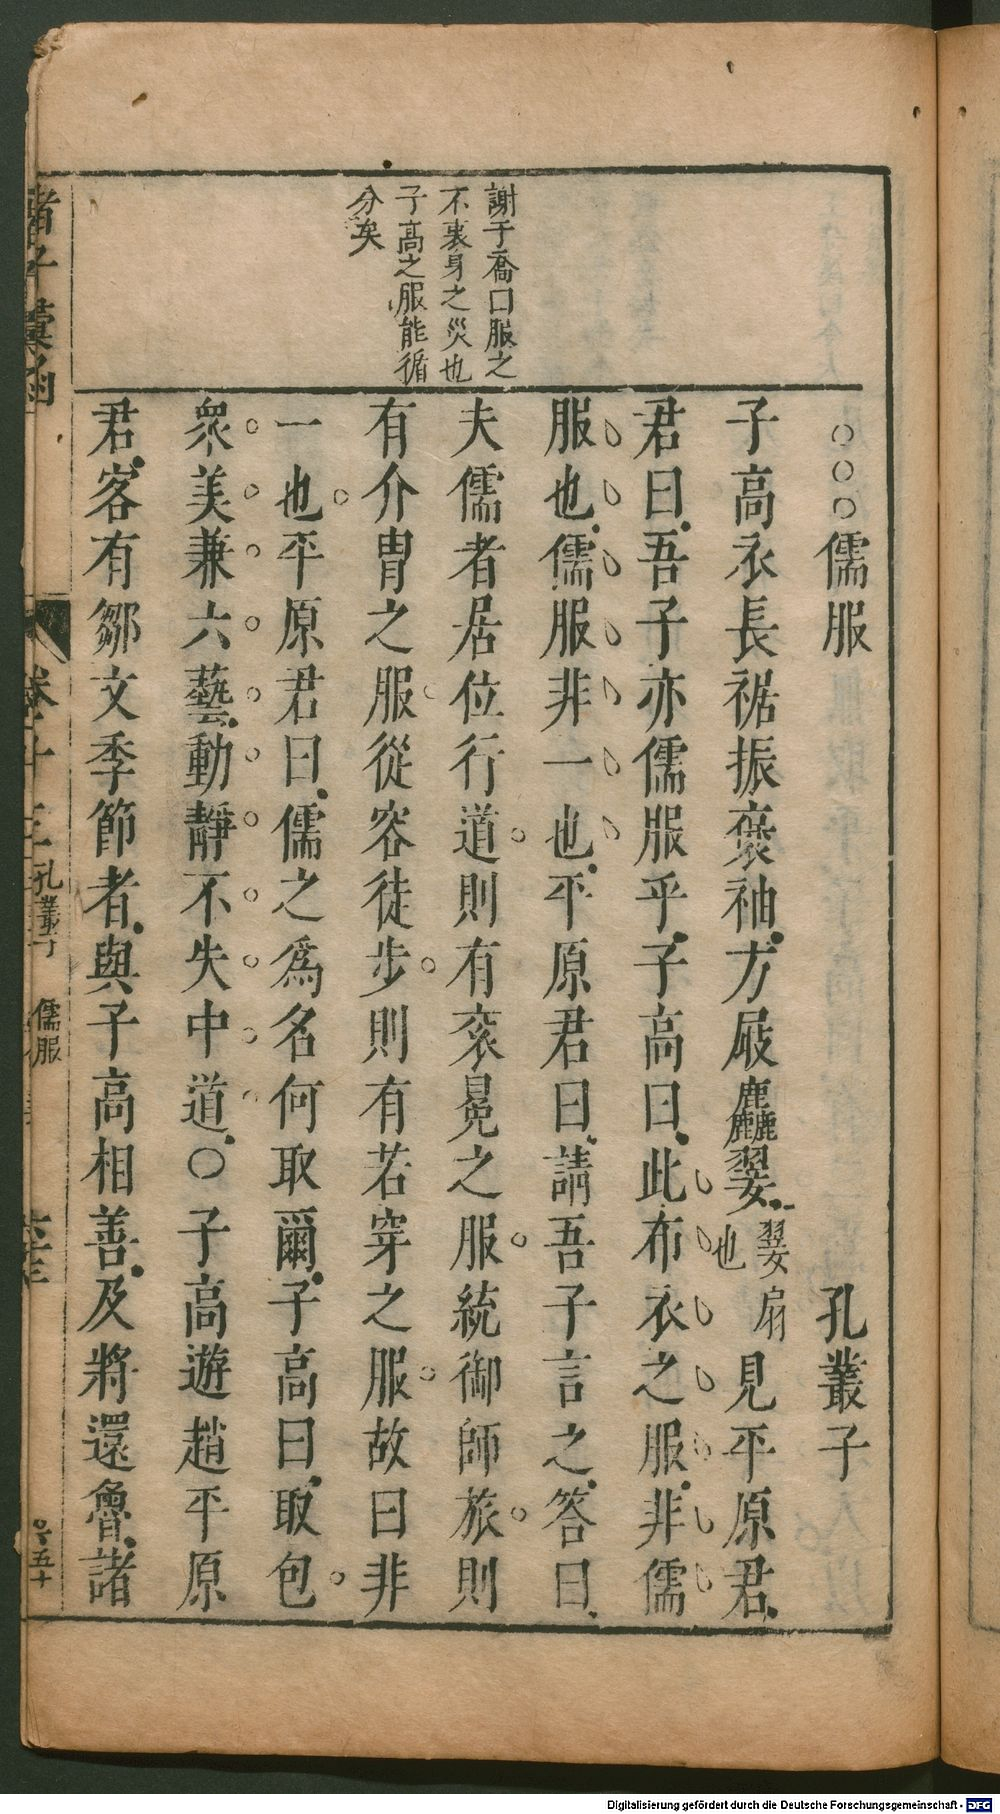 謝于喬口服之
不衷身之災也
子高之服能循
分矣
○○○儒服 孔叢子
子高衣長裾振褒袖方屐麤翣翣扇也見平原君
君曰吾子亦儒服乎子高曰此布衣之服非儒
服也儒服非一也平原君曰請吾子言之答曰
夫儒者居位行道則有袞冕之服統御師旅則
有介胄之服從容徒步則有若穿之服故曰非
一也平原君曰儒之爲名何取爾子高曰取包
衆美兼六藝動靜不失中道○子高遊趙平原
君客有鄒文季節者與子高相善及將還魯諸
諸子彙函 卷十三 孔叢子 儒服
Digitalisierung gefördert durch die Deutsche Forschungsgemeinschaft - DFG